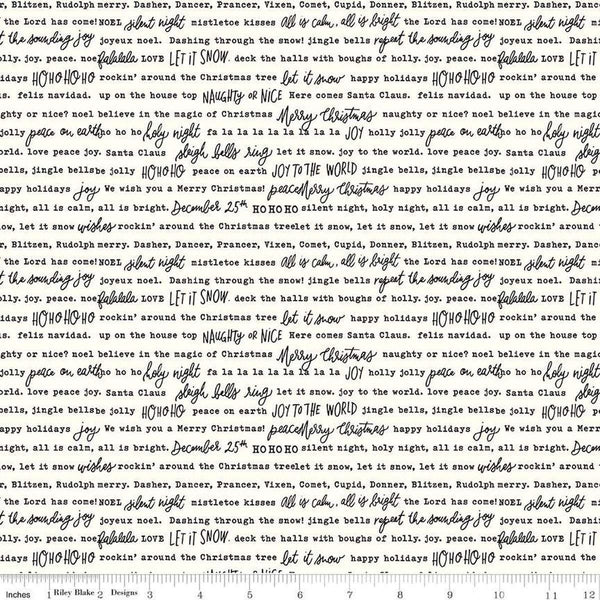 r, Blitzen, Rudolph merry. Dasher, Dancer, Prancer, Vixen, Comet, Cupid, Donner, Blitzen, Rudolph merry. Dasher, Danc
the Lord has come! NOEL silent night mistletoe kisses all is calm, all is bright the Lord has come! NOEL silent night mi
t the sounding joy joyeux noel. Dashing through the snow! jingle bells repeat the sounding joy joyeux noel. Dashin
olly. joy. peace. noe falalala LOVE LET IT SNOW. deck the halls with boughs of holly. joy. peace. noe falalala LOVE LET IT
idays HO HO HO HO rockin' around the Christmas tree let it snow happy holidays HO HO HO HO rockin' around the
s. feliz navidad. up on the house top NAUGHTY OR NICE Here comes Santa Claus. feliz navidad. up on the house top
ghty or nice? noel believe in the magic of Christmas Merry Christmas naughty or nice? noel believe in the magic
jolly peace on earth ho ho ho holy night fa la la la la la la la la JOY holly jolly peace on earth ho ho ho holy night
orld. love peace joy. Santa Claus sleigh bells ring let it snow. joy to the world. love peace joy. Santa Claus sleig
bells, jingle bells be jolly HO HO HO peace on earth JOY TO THE WORLD jingle bells, jingle bells be jolly HO HO HO pe
appy holidays joy We wish you a Merry Christmas! peace Merry Christmas happy holidays joy We wish you a Mer
night, all is calm, all is bright. December 25th HO HO HO silent night, holy night, all is calm, all is bright. Decem
ow, let it snow wishes rockin' around the Christmas tree let it snow, let it snow, let it snow wishes rockin' around t
r, Blitzen, Rudolph merry. Dasher, Dancer, Prancer, Vixen, Comet, Cupid, Donner, Blitzen, Rudolph merry. Dasher, Danc
the Lord has come! NOEL silent night mistletoe kisses all is calm, all is bright the Lord has come! NOEL silent night mi
t the sounding joy joyeux noel. Dashing through the snow! jingle bells repeat the sounding joy joyeux noel. Dashin
olly. joy. peace. noe falalala LOVE LET IT SNOW. deck the halls with boughs of holly. joy. peace. noe falalala LOVE LET IT
idays HO HO HO HO rockin' around the Christmas tree let it snow happy holidays HO HO HO HO rockin' around the
s. feliz navidad. up on the house top NAUGHTY OR NICE Here comes Santa Claus. feliz navidad. up on the house top
ghty or nice? noel believe in the magic of Christmas Merry Christmas naughty or nice? noel believe in the magic
jolly peace on earth ho ho ho holy night fa la la la la la la la la JOY holly jolly peace on earth ho ho ho holy night
orld. love peace joy. Santa Claus sleigh bells ring let it snow. joy to the world. love peace joy. Santa Claus sleig
bells, jingle bells be jolly HO HO HO peace on earth JOY TO THE WORLD jingle bells, jingle bells be jolly HO HO HO pe
appy holidays joy We wish you a Merry Christmas! peace Merry Christmas happy holidays joy We wish you a Mer
night, all is calm, all is bright. December 25th HO HO HO silent night, holy night, all is calm, all is bright. Decem
ow, let it snow wishes rockin' around the Christmas tree let it snow, let it snow, let it snow wishes rockin' around t
r, Blitzen, Rudolph merry. Dasher, Dancer, Prancer, Vixen, Comet, Cupid, Donner, Blitzen, Rudolph merry. Dasher, Danc
the Lord has come! NOEL silent night mistletoe kisses all is calm, all is bright the Lord has come! NOEL silent night mi
t the sounding joy joyeux noel. Dashing through the snow! jingle bells repeat the sounding joy joyeux noel. Dashin
olly. joy. peace. noe falalala LOVE LET IT SNOW. deck the halls with boughs of holly. joy. peace. noe falalala LOVE LET IT
idays HO HO HO HO rockin' around the Christmas tree let it snow happy holidays HO HO HO HO rockin' around the
Inches 1 Riley Blake 2 Designs 3 4 5 6 7 8 9 10 11 12